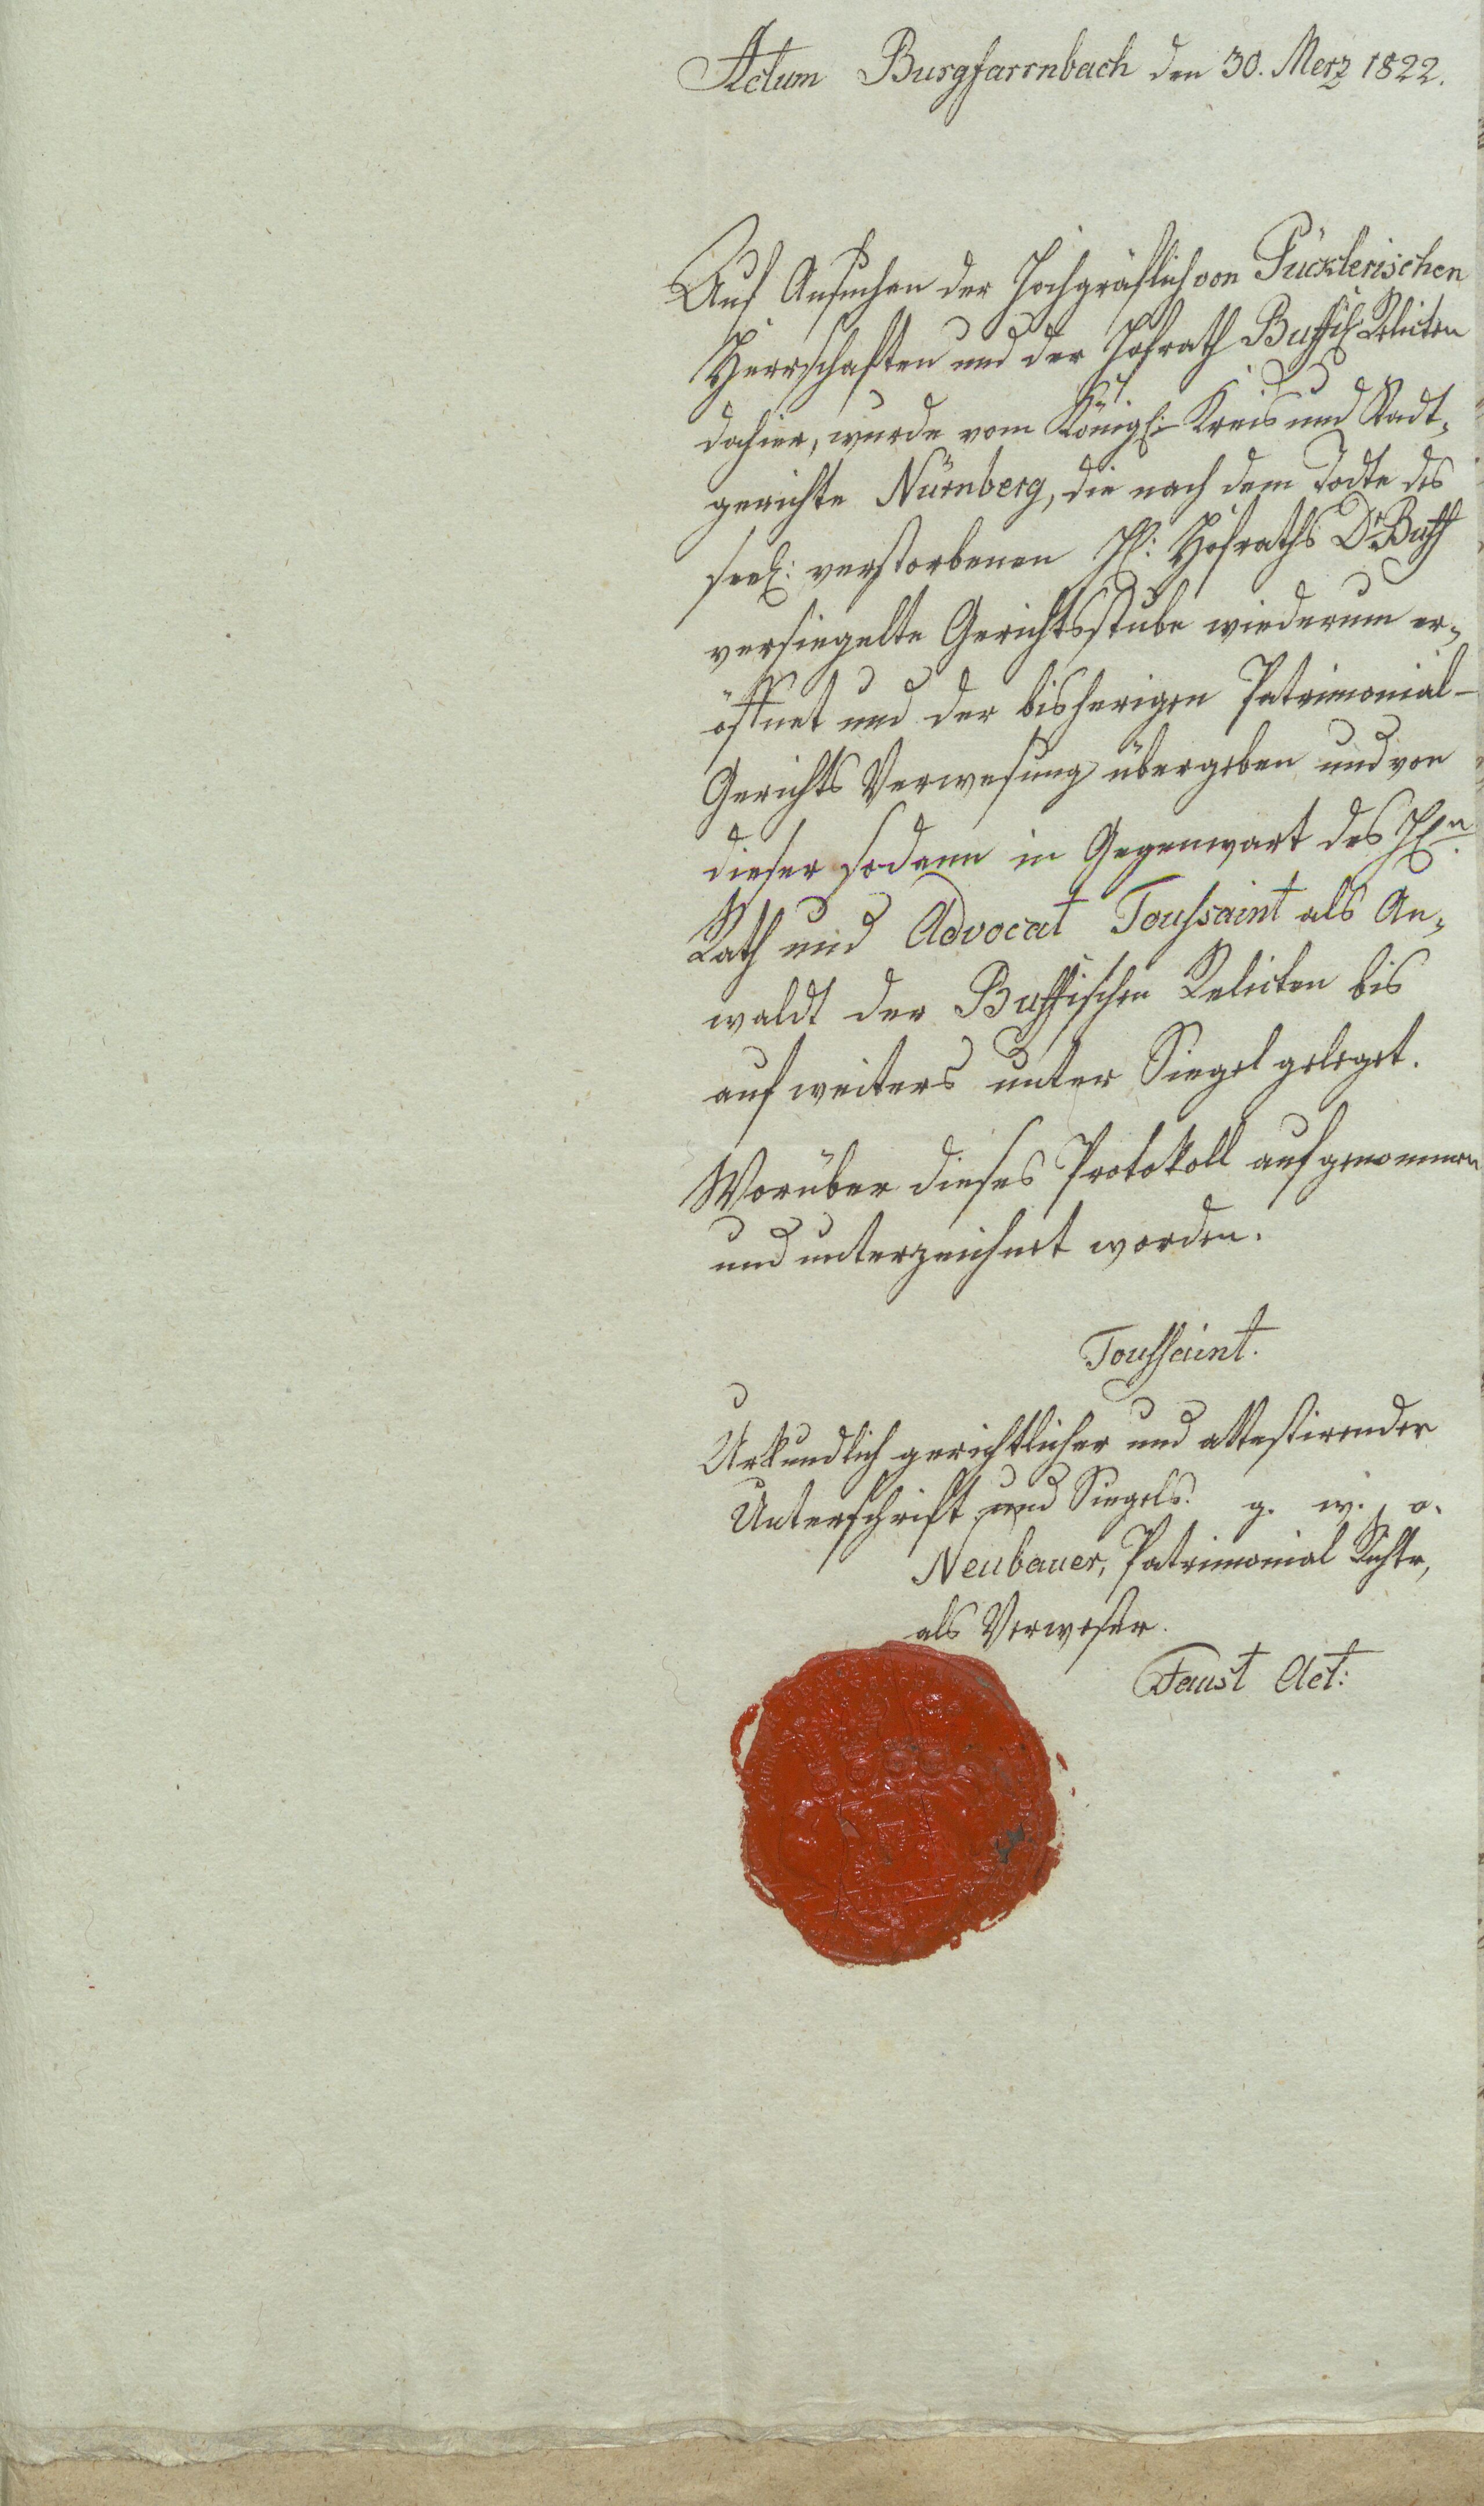 Actum Burgfarrnbach den 30. Merz 1822.
Auf Ansuchen der Hochgräflich von Pücklerischen
Herrschaften und der Hofrath Buffisch Relicten
dahier, wurde vom Königl: Kreis und Stadt,
gerichte Nürnberg, die nach dem Todte des
seel: verstorbenen H: Hofraths Dr Buff
versiegelte Gerichtsstube wiederum er,
öffnet und der bisherigen Patrimonial-
Gerichts Verwesung übergeben und von
dieser sodann in Gegenwart des Hn.
Rath und Advocat Toussaint als An,
waldt der Buffischen Relicten bis
auf weiters unter Siegel geleget.
Worüber dieses Protokoll aufgenommen
und unterzeichnet worden.
Toussaint.
Urkundlich gerichtlicher und attestirender
Unterschrift und Siegels. g. w. o.
Neubauer, Patrimonial Richter,
als Verweser.
Faust Act: